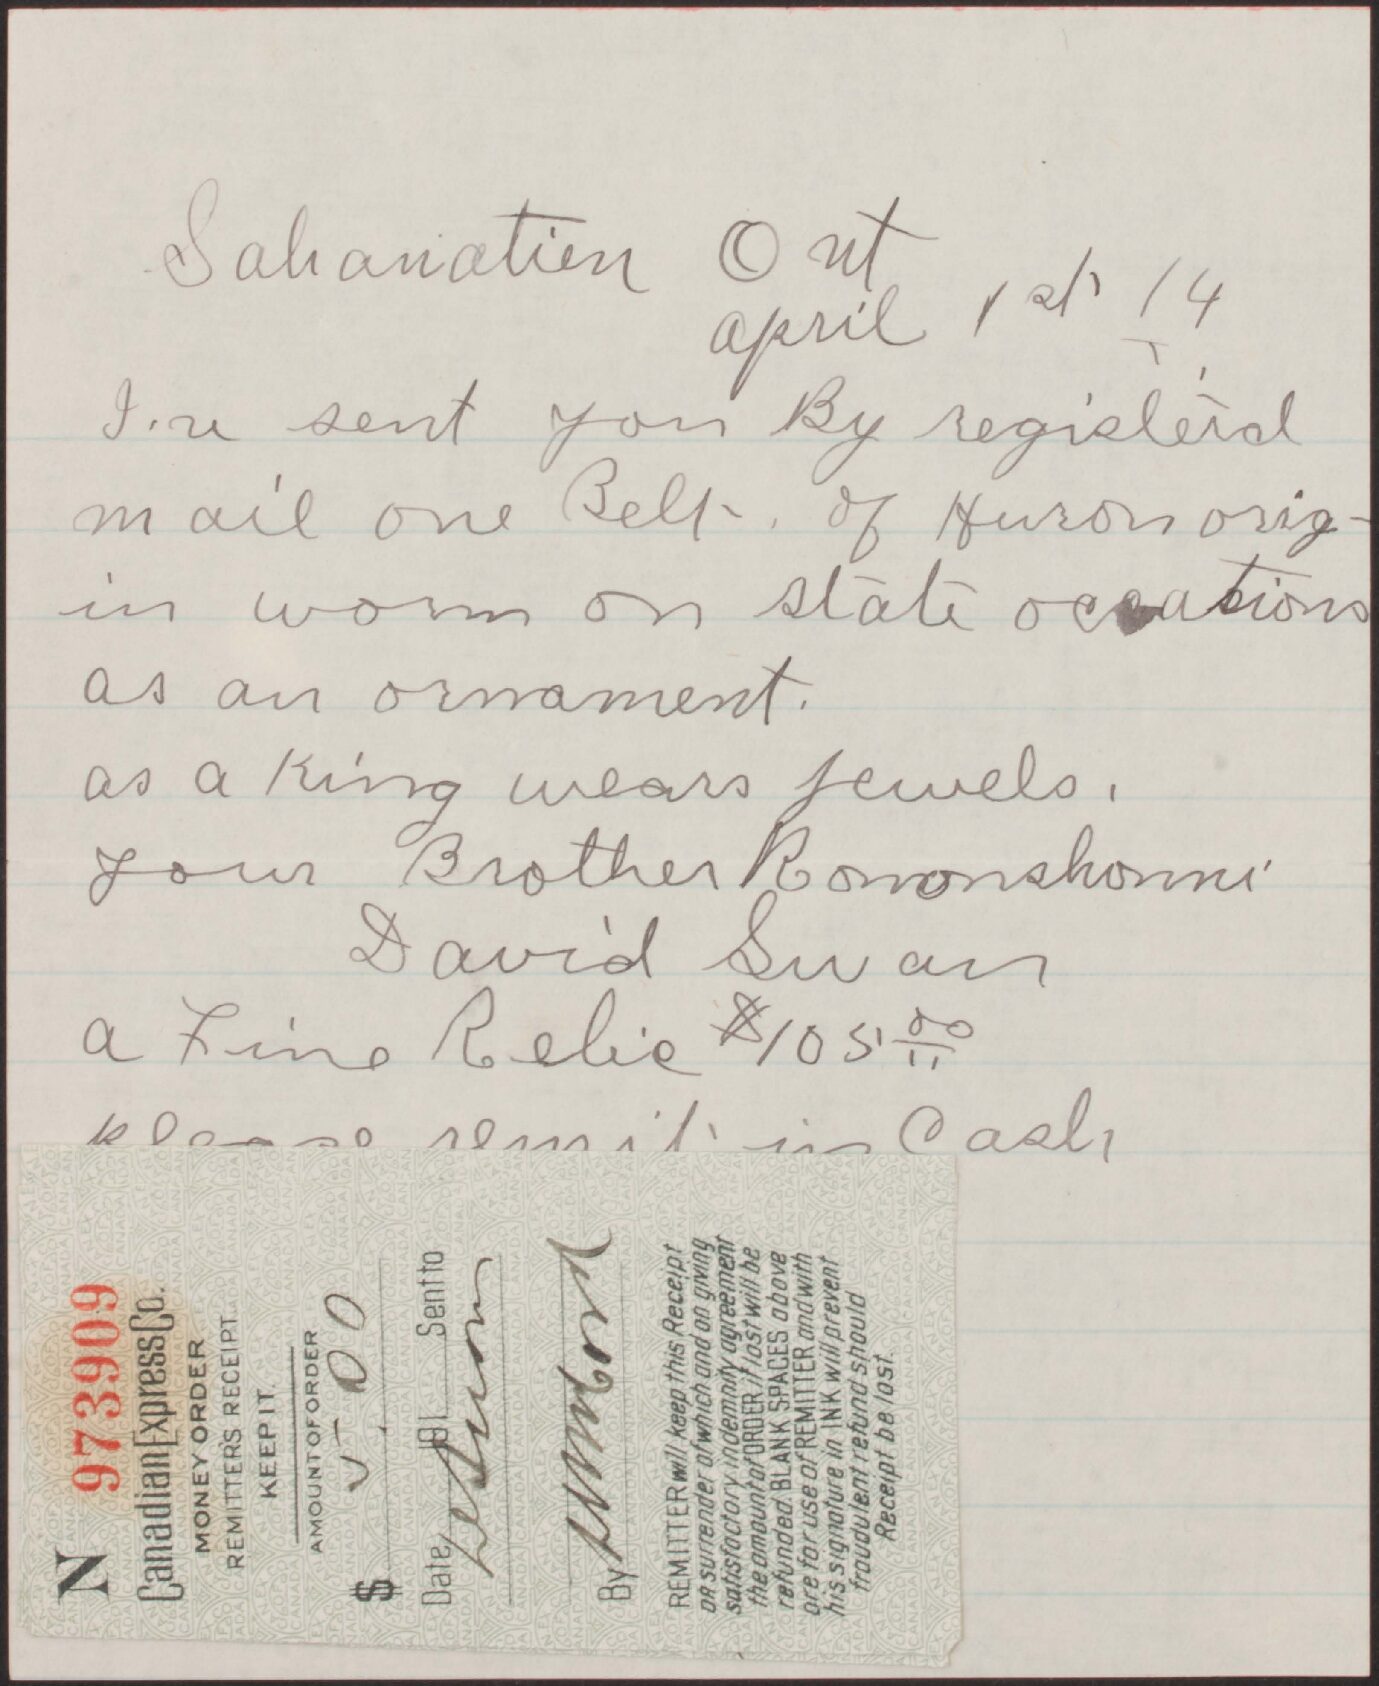 Sahanatien Ont
april 1st 14
I.ve sent you By registerd
mail one Belt. of Huron orig-
in worn on state occations
as an ornament.
as a King wears jewels.
your Brother Rononshonni
David Swan
a Fine Relic $105 00
please remit in Cash
N 973909
Canadian Express Co.
MONEY ORDER
REMITTER'S RECEIPT.
KEEP IT.
AMOUNT OF ORDER
$ 5.00
Date, 191 Sent to
By
REMITTER will keep this Receipt
on surrender of which and on giving
satisfactory indemnity agreement
the amount of ORDER if lost will be
refunded. BLANK SPACES above
are for use of REMITTER and with
his signature in INK will prevent
fraudulent refund should
Receipt be lost.